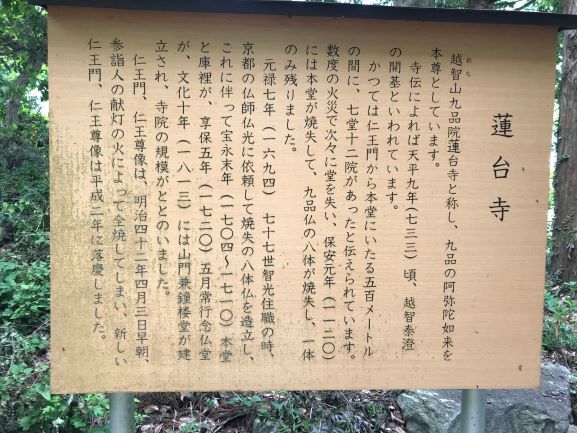 蓮台寺
越智山九品院蓮台寺と称し、九品の阿弥陀如来を
おち
本尊としています。
寺伝によれば天平九年(七三三)頃、越智泰澄
の開基といわれています。
かつては仁王門から本堂にいたる五百メートル
の間に、七堂十二院があったと伝えられています。
数度の火災で次々に堂を失い、保安元年(一一二〇)
には本堂が焼失して、九品仏の八体が焼失し、一体
のみ残りました。
元禄七年(一六九四)七十七世智光住職の時、
京都の仏師仏光に依頼して焼失の八体仏を造立し、
これに伴って宝永末年(一七〇四~一七一〇)本堂
と庫裡が、享保五年(一七二〇)五月常行念仏堂
が、文化十年(一八一三)には山門兼鐘楼堂が建
立され、寺院の規模がととのいました。
仁王門、仁王尊像は、明治四十二年四月三日早朝、
参詣人の献灯の火によって全焼してしまい、新しい
仁王門、仁王尊像は平成二年に落慶しました。